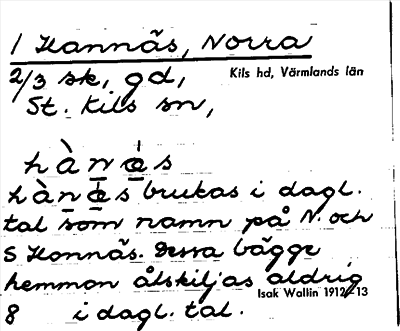 1 Konnäs, Norra
2/3 sk, gd,
Kils hd, Värmlands län
St. Kils sn,
hàṉa̱s
hàṉa̱s brukas i dagl.
tal som namn på N. och
S Konnäs. Dessa bägge
hemman åtskiljas aldrig
Isak Wallin 1912-13
8 i dagl. tal.